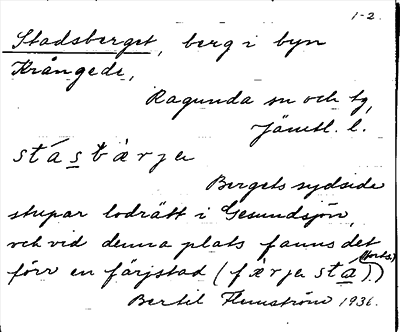 1-2.
Stadsberget, berg i byn
Krångede,
Ragunda sn och tg,
Jämtl. l.
stásbàrja
Bergets sydsida
stupar lodrätt i Gesundsjön,
och vid denna plats fanns det
förr en färjstad (färjastá).)
(forts.)
Bertil Flemström 1936.